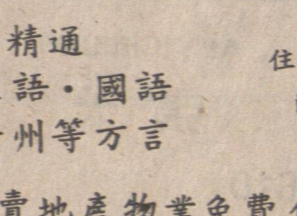 精通
語・國語
州等方言
住
賣地產物業免費